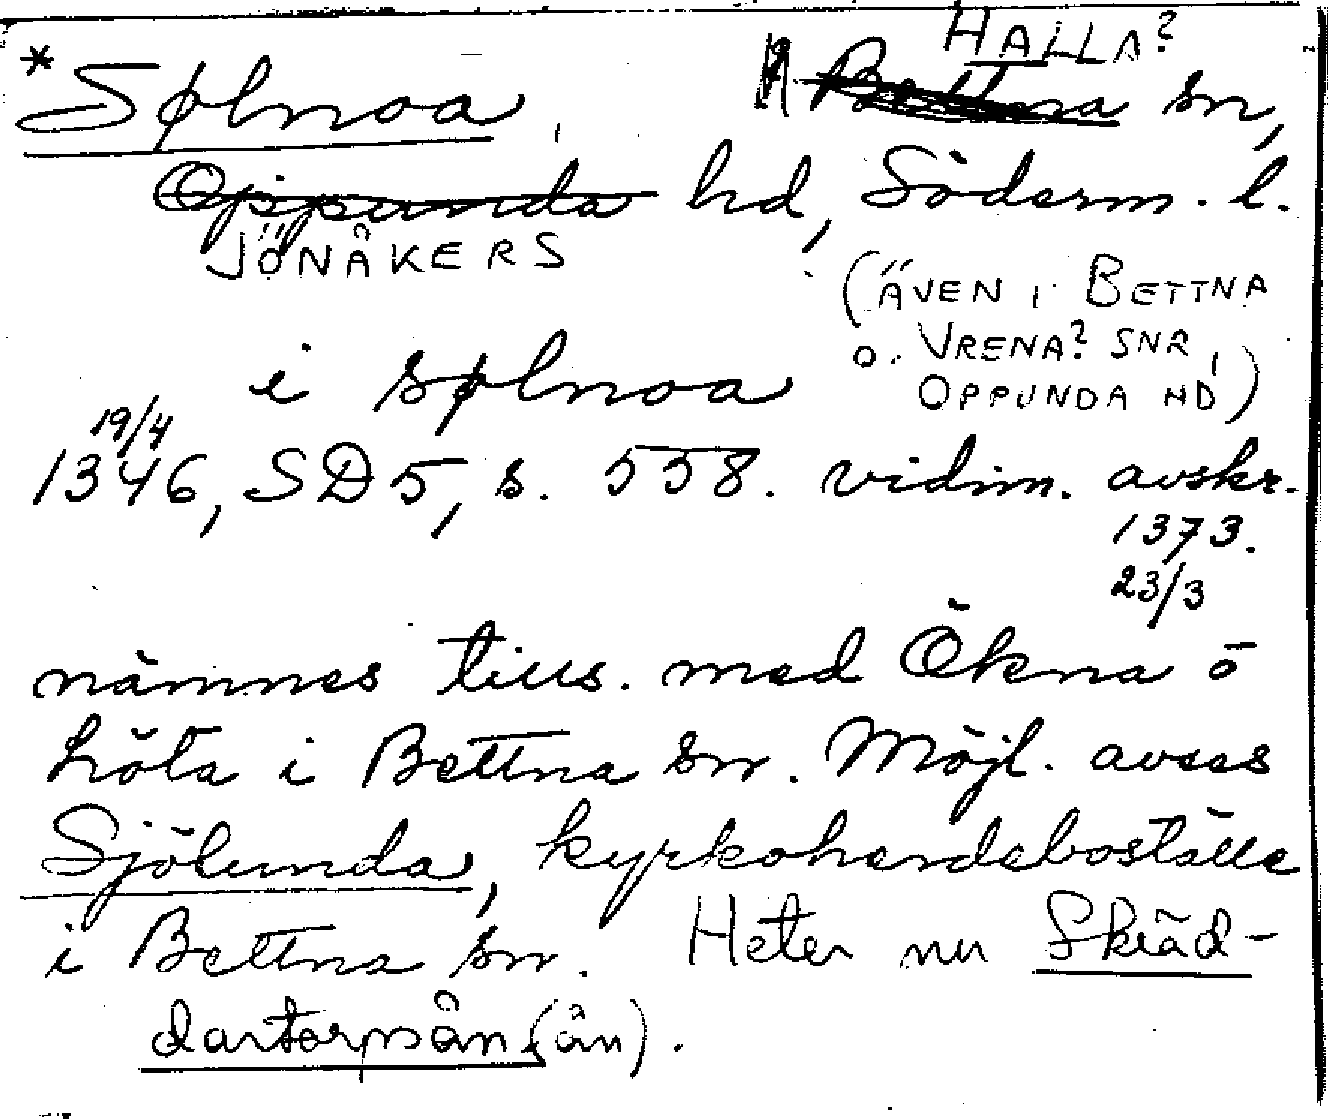 HALLA?
*Sølnoa, Bettna sn,
Oppunda hd, Söderm. l.
JÖNÅKERS
(ÄVEN I BETTNA
o. VRENA? SNR,
OPPUNDA HD)
i sølnoa
19/4
1346, SD 5, s. 558. vidim. avskr.
1373.
23/3
nämnes tills. med Ökna o
höta i Bettna sn. Möjl. avses
Sjölunda, kyrkoherdeboställe
i Bettna sn. Heter nu Skräd-
dartorpsån (ån).